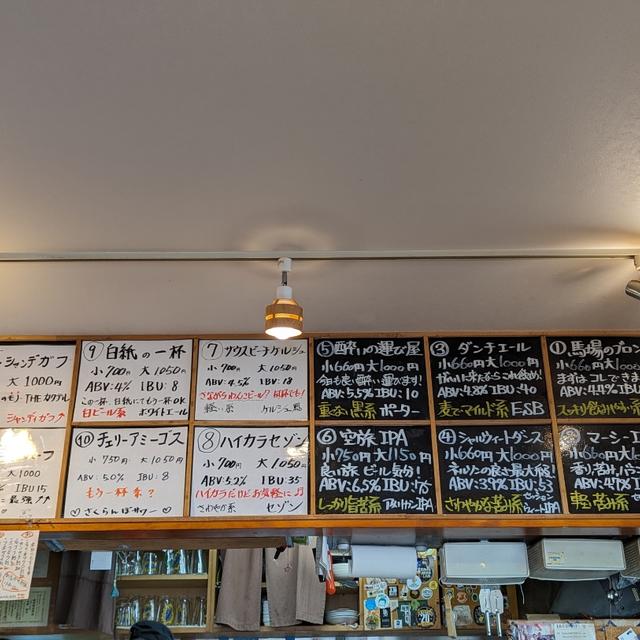 シャンディガフ
大 1000円
シャンディガフ↑
大 1000
IBU 15
= 最強↑↑
⑨ 白紙の一杯
小 700円 大 1050円
ABV:4% IBU:8
この一杯、白紙にてもう一杯OK
白ビール系 ホワイトエール
⑩ チェリーアミーゴス
小 750円 大 1050円
ABV: 5.0% IBU: 8
もう一杯系?
♡ さくらんぼサワー ♡
⑦ サウスビーチケルシュ
小 700円 大 1050円
ABV: 4.5% IBU: 18
軽い系 ケルシュ風
⑧ ハイカラセゾン
小 700円 大 1050円
ABV:5.2% IBU:35
ハイカラだけどお気軽に♫
さわやか系 セゾン
⑤ 酔いの運び屋
小660円 大1000円
今日も良い酔い運びます!
ABV:5.5% IBU:10
重ない黒系 ポーター
⑥ 空旅 IPA
小750円 大1150円
良い旅 ビール気分!
ABV:6.5% IBU:75
しっかり苦系
③ ダンチエール
小660円 大1000円
ABV:4.8% IBU:40
麦でマイルド系 ESB
④ シャルウィートダンス
小660円 大1000円
ネルソンの良さ最大限!
ABV:3.9% IBU:53
さわやかな苦み系 セッションウィートIPA
① 馬場のブロン
小660円 大1000
まずは コレ
ABV:4.9% IBU
スッキリ飲みやす
マーシーI
小660円 大1000
ABV:4.7% IB
軽苦み系